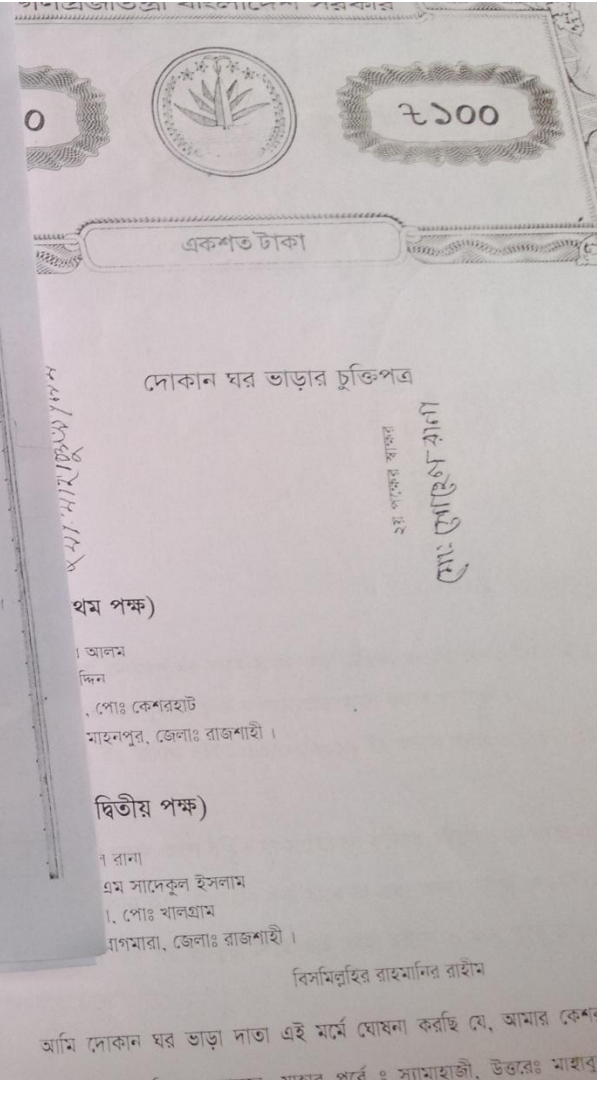 গণপ্রজাতন্ত্রী বাংলাদেশ সরকার
০
৳১০০
একশত টাকা
দোকান ঘর ভাড়ার চুক্তিপত্র
২য় পক্ষের স্বাক্ষর
মোঃ সোহেল রানা
থম পক্ষ)
আলম
দ্দিন
, পোঃ কেশরহাট
মোহনপুর, জেলাঃ রাজশাহী ।
দ্বিতীয় পক্ষ)
রানা
এম সাদেকুল ইসলাম
পোঃ খালগ্রাম
বাগমারা, জেলাঃ রাজশাহী ।
বিসমিল্লাহির রাহমানির রাহীম
আমি দোকান ঘর ভাড়া দাতা এই মর্মে ঘোষনা করছি যে, আমার কেশর
উত্তরেঃ